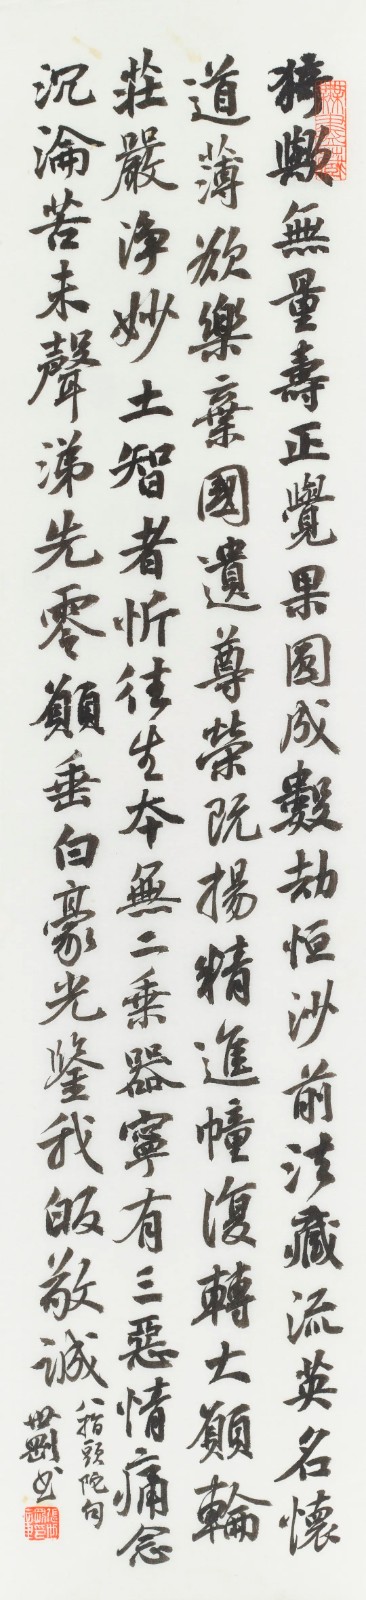 猗歟無量壽正覺果圓成數劫恒沙前法藏流英名懷
道薄欲樂棄國遺尊榮既揚精進幢復轉大願輪
莊嚴淨妙土智者忻往生本無二乘器寧有三惡情痛念
沉淪苦未聲涕先零願垂白豪光鑒我皈敬誠
八指頭陀句
世剛書